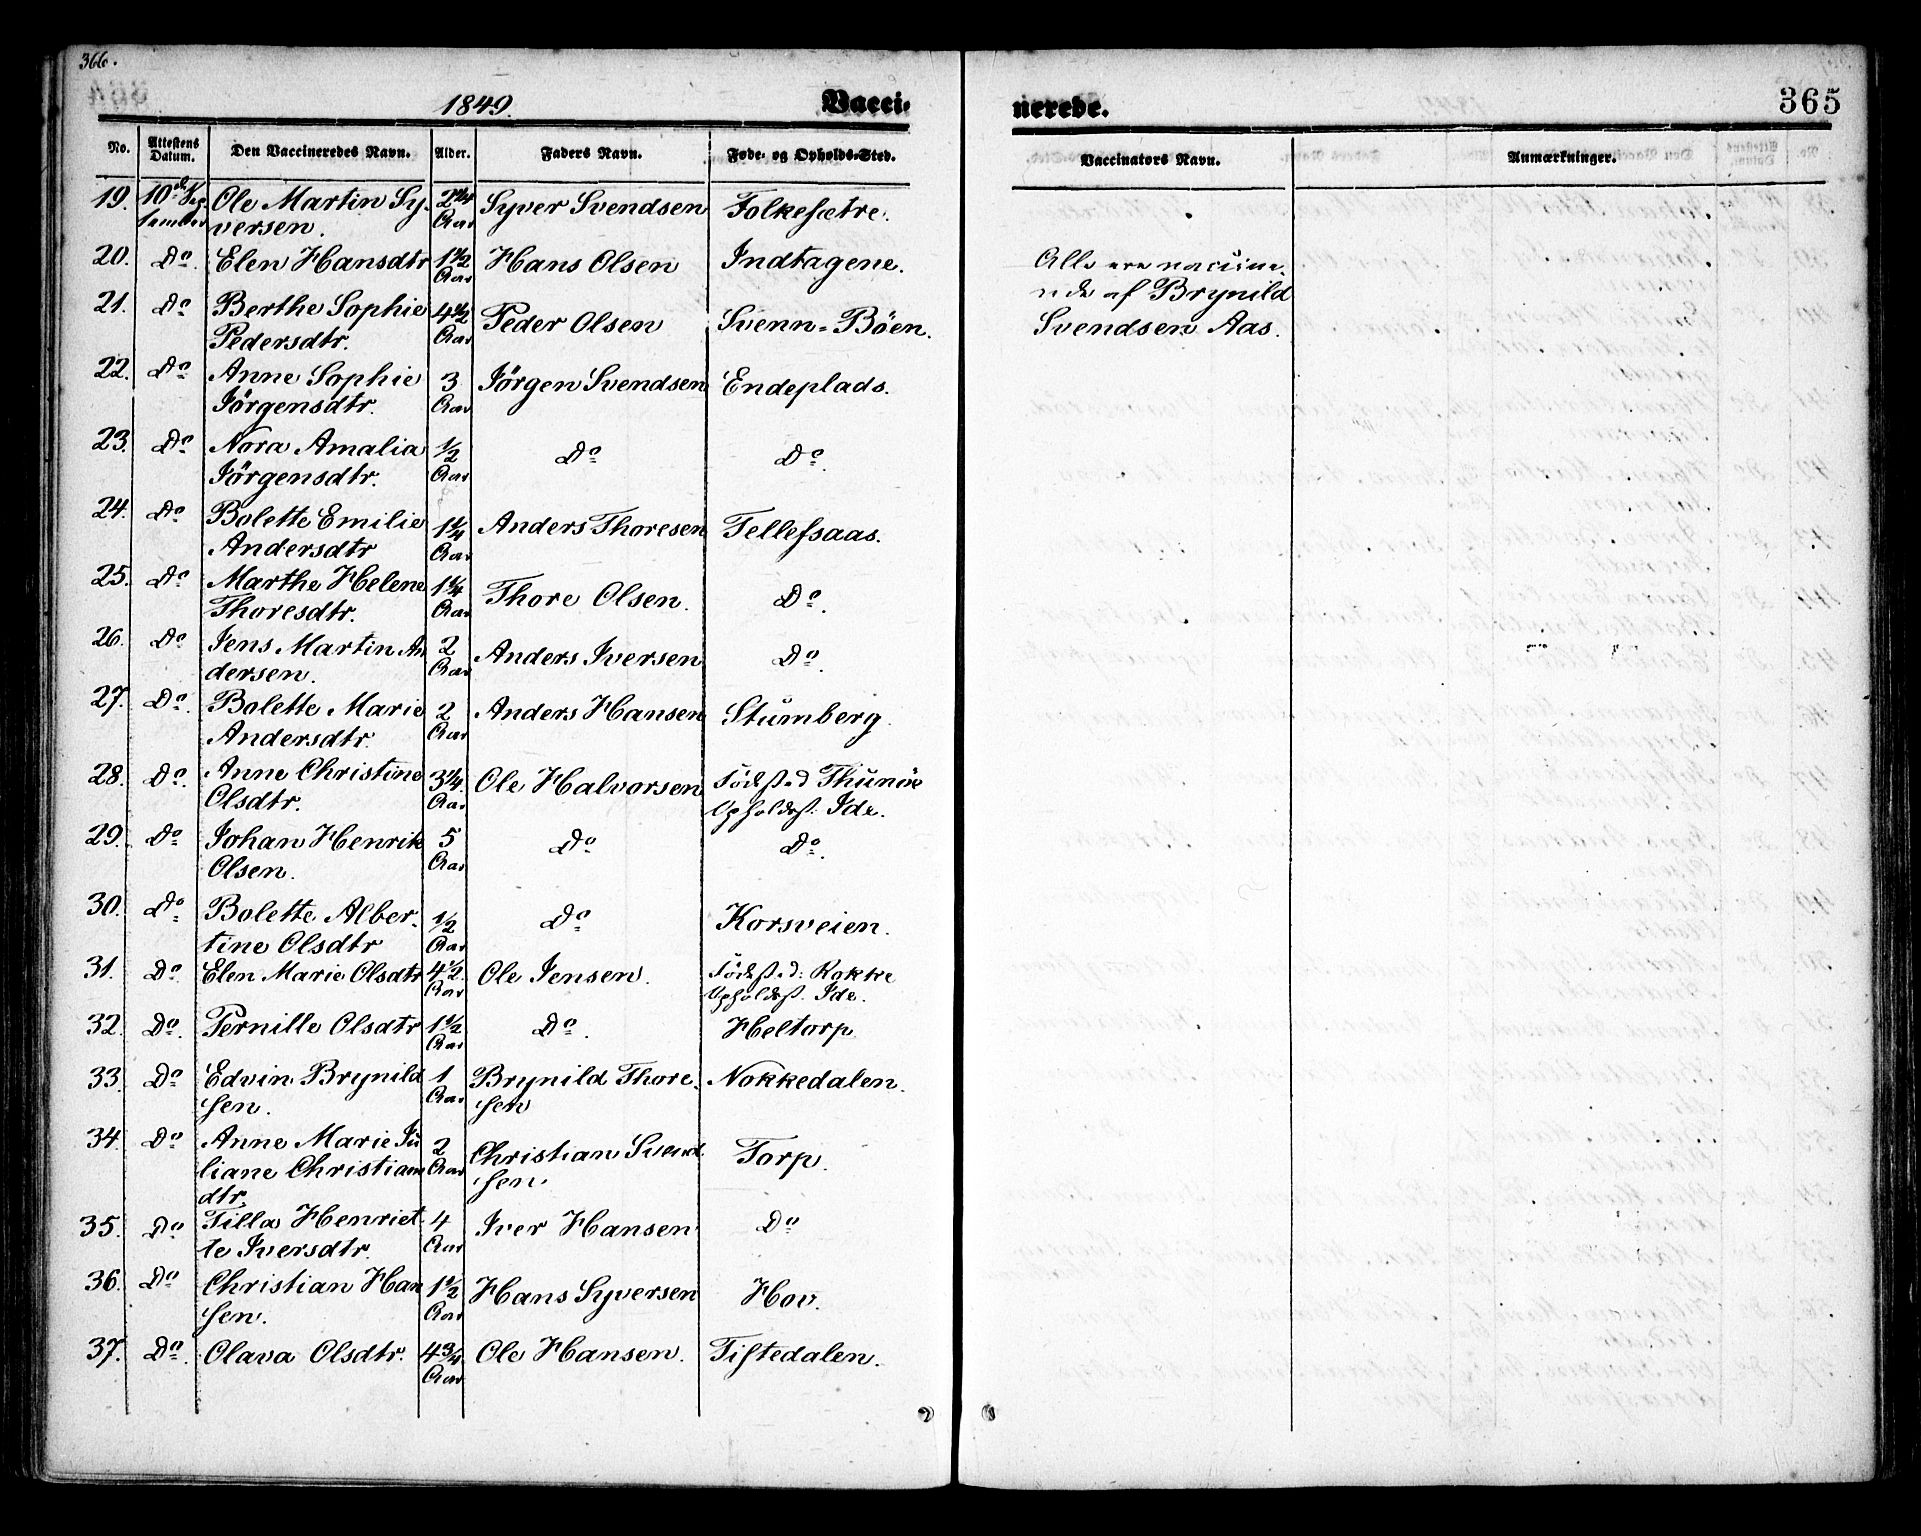 366.
1849.
Vacci-
nerede.
365
No.
Attestens Datum.
Den Vaccineredes Navn.
Alder.
Faders Navn.
Føde- og Opholds-Sted.
Vaccinators Navn.
Anmærkninger.
19. 10de Sep Ole Martin Sy- 2 1/4 Syver Svendsen Folkesætre.
tember versen. Aar
20. Do. Elen Hansdtr 1 1/2 Hans Olsen Indtagene.
Aar
Alle ere vaccine-
rede af Brynild
Svendsen Aas.
21. Do Berthe Sophie 4 1/2 Peder Olsen Svenn-Böen.
Pedersdtr. Aar
22. Do Anne Sophie 3 Jörgen Svendsen Endeplads.
Jörgensdtr. Aar
23. Do Nora Amalia 1/2 Do Do.
Jörgensdtr. Aar
24. Do Bolette Emilie 1 1/4 Anders Thoresen Tellefsaas.
Andersdtr Aar
25. Do Marthe Helene 1 1/4 Thore Olsen. Do.
Thoresdtr. Aar
26. Do Jens Martin An 2 Anders Iversen Do.
dersen. Aar
27. Do. Bolette Marie 2 Anders Hansen Stumberg.
Andersdtr. Aar
28. Do. Anne Christine 3 1/4 Ole Halvorsen Födested Thunöe
Olsdtr. Aar Opholdsst. Ide.
29. Do Johan Henrik 5 Do Do.
Olsen. Aar
30. Do Bolette Alber- 1/2 Do Korsveien.
tine Olsdtr Aar
31. Do Elen Marie Olsdtr 4 1/2 Ole Jensen. Födested: Rokke
Aar Opholdsst. Ide.
32. Do. Pernille Olsdtr 1 1/2 Do. Heltorp.
Aar
33. Do Edvin Brynild 1 Brynild Thore- Nokkedalen.
sen. Aar sen
34. Do Anne Marie Ju 2 Christian Svend- Torp.
liane Christians Aar sen
dtr.
35. Do Tilla Henriet 4 Iver Hansen Do
te Iversdtr. Aar
36. Do Christian Han 1 1/2 Hans Syversen Hov.
sen. Aar
37. Do. Olava Olsdtr. 4 3/4 Ole Hansen. Tistedalen.
Aar